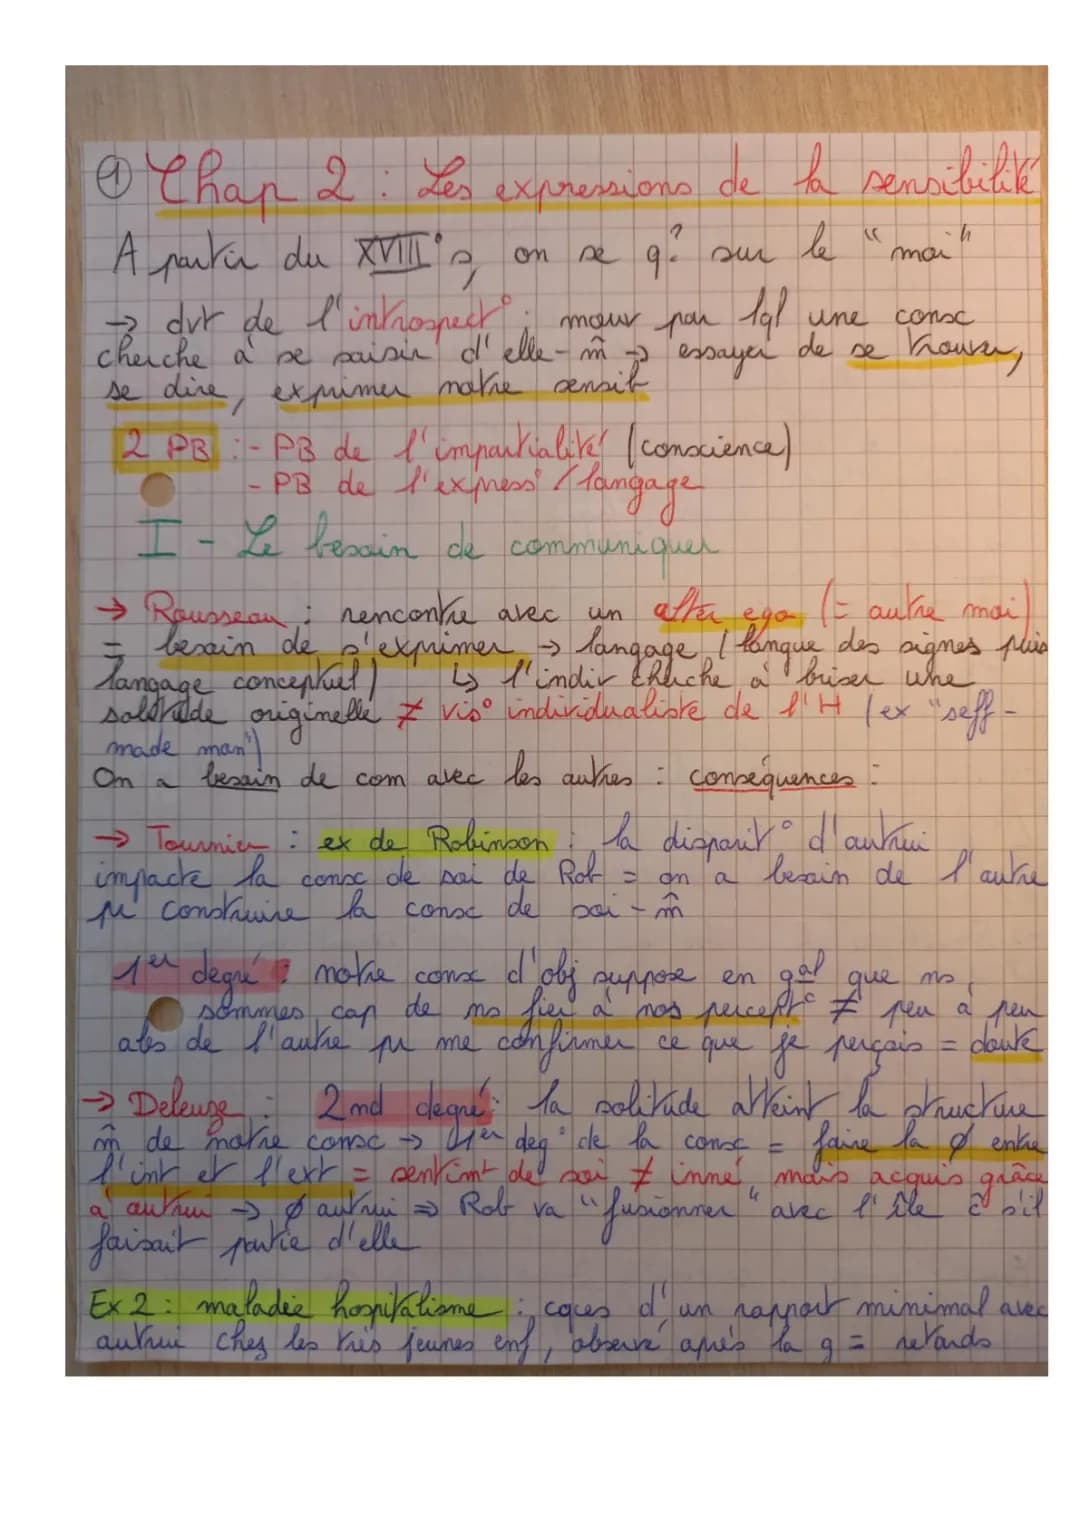 ① Chap 2 : Les expressions de la sensibilité
A partir du XVIII°s, on se q? sur le "moi"
→ dvt de l'introspect° : mouv par lql une consc
cherche à se saisir d'elle-m̂ → essayer de se trouver,
se dire, exprimer notre sensib
2 PB : - PB de l'impartialité (conscience)
- PB de l'express° / langage
I - Le besoin de communiquer
→ Rousseau : rencontre avec un alter ego (= autre moi)
= besoin de s'exprimer → langage (langue des signes puis
langage conceptuel) ↳ l'indiv cherche à briser une
solitude originelle ≠ vis° individualiste de l'H (ex "seff-
made man")
On a besoin de com avec les autres : conséquences :
→ Tournier : ex de Robinson : la disparit° d'autrui
impacte la consc de soi de Rob = on a besoin de l'autre
pr construire la consc de soi-m̂
1er degré : notre consc d'obj suppose en gal que ns
sommes cap de ns fier à nos percept° ≠ peu à peu
abs de l'autre pr me confirmer ce que je perçois = doute
→ Deleuze : 2nd degré : la solitude atteint la structure
m̂ de notre consc → 1er deg° de la consc = faire la ø entre
l'int et l'ext = sentimt de soi ≠ inné, mais acquis grâce
à autrui → ø autrui ⇒ Rob va "fusionner" avec l'île ĉ s'il
faisait partie d'elle
Ex 2 : maladie hospitalisme : cqces d'un rapport minimal avec
autrui chez les très jeunes enf, observé après la g = retards